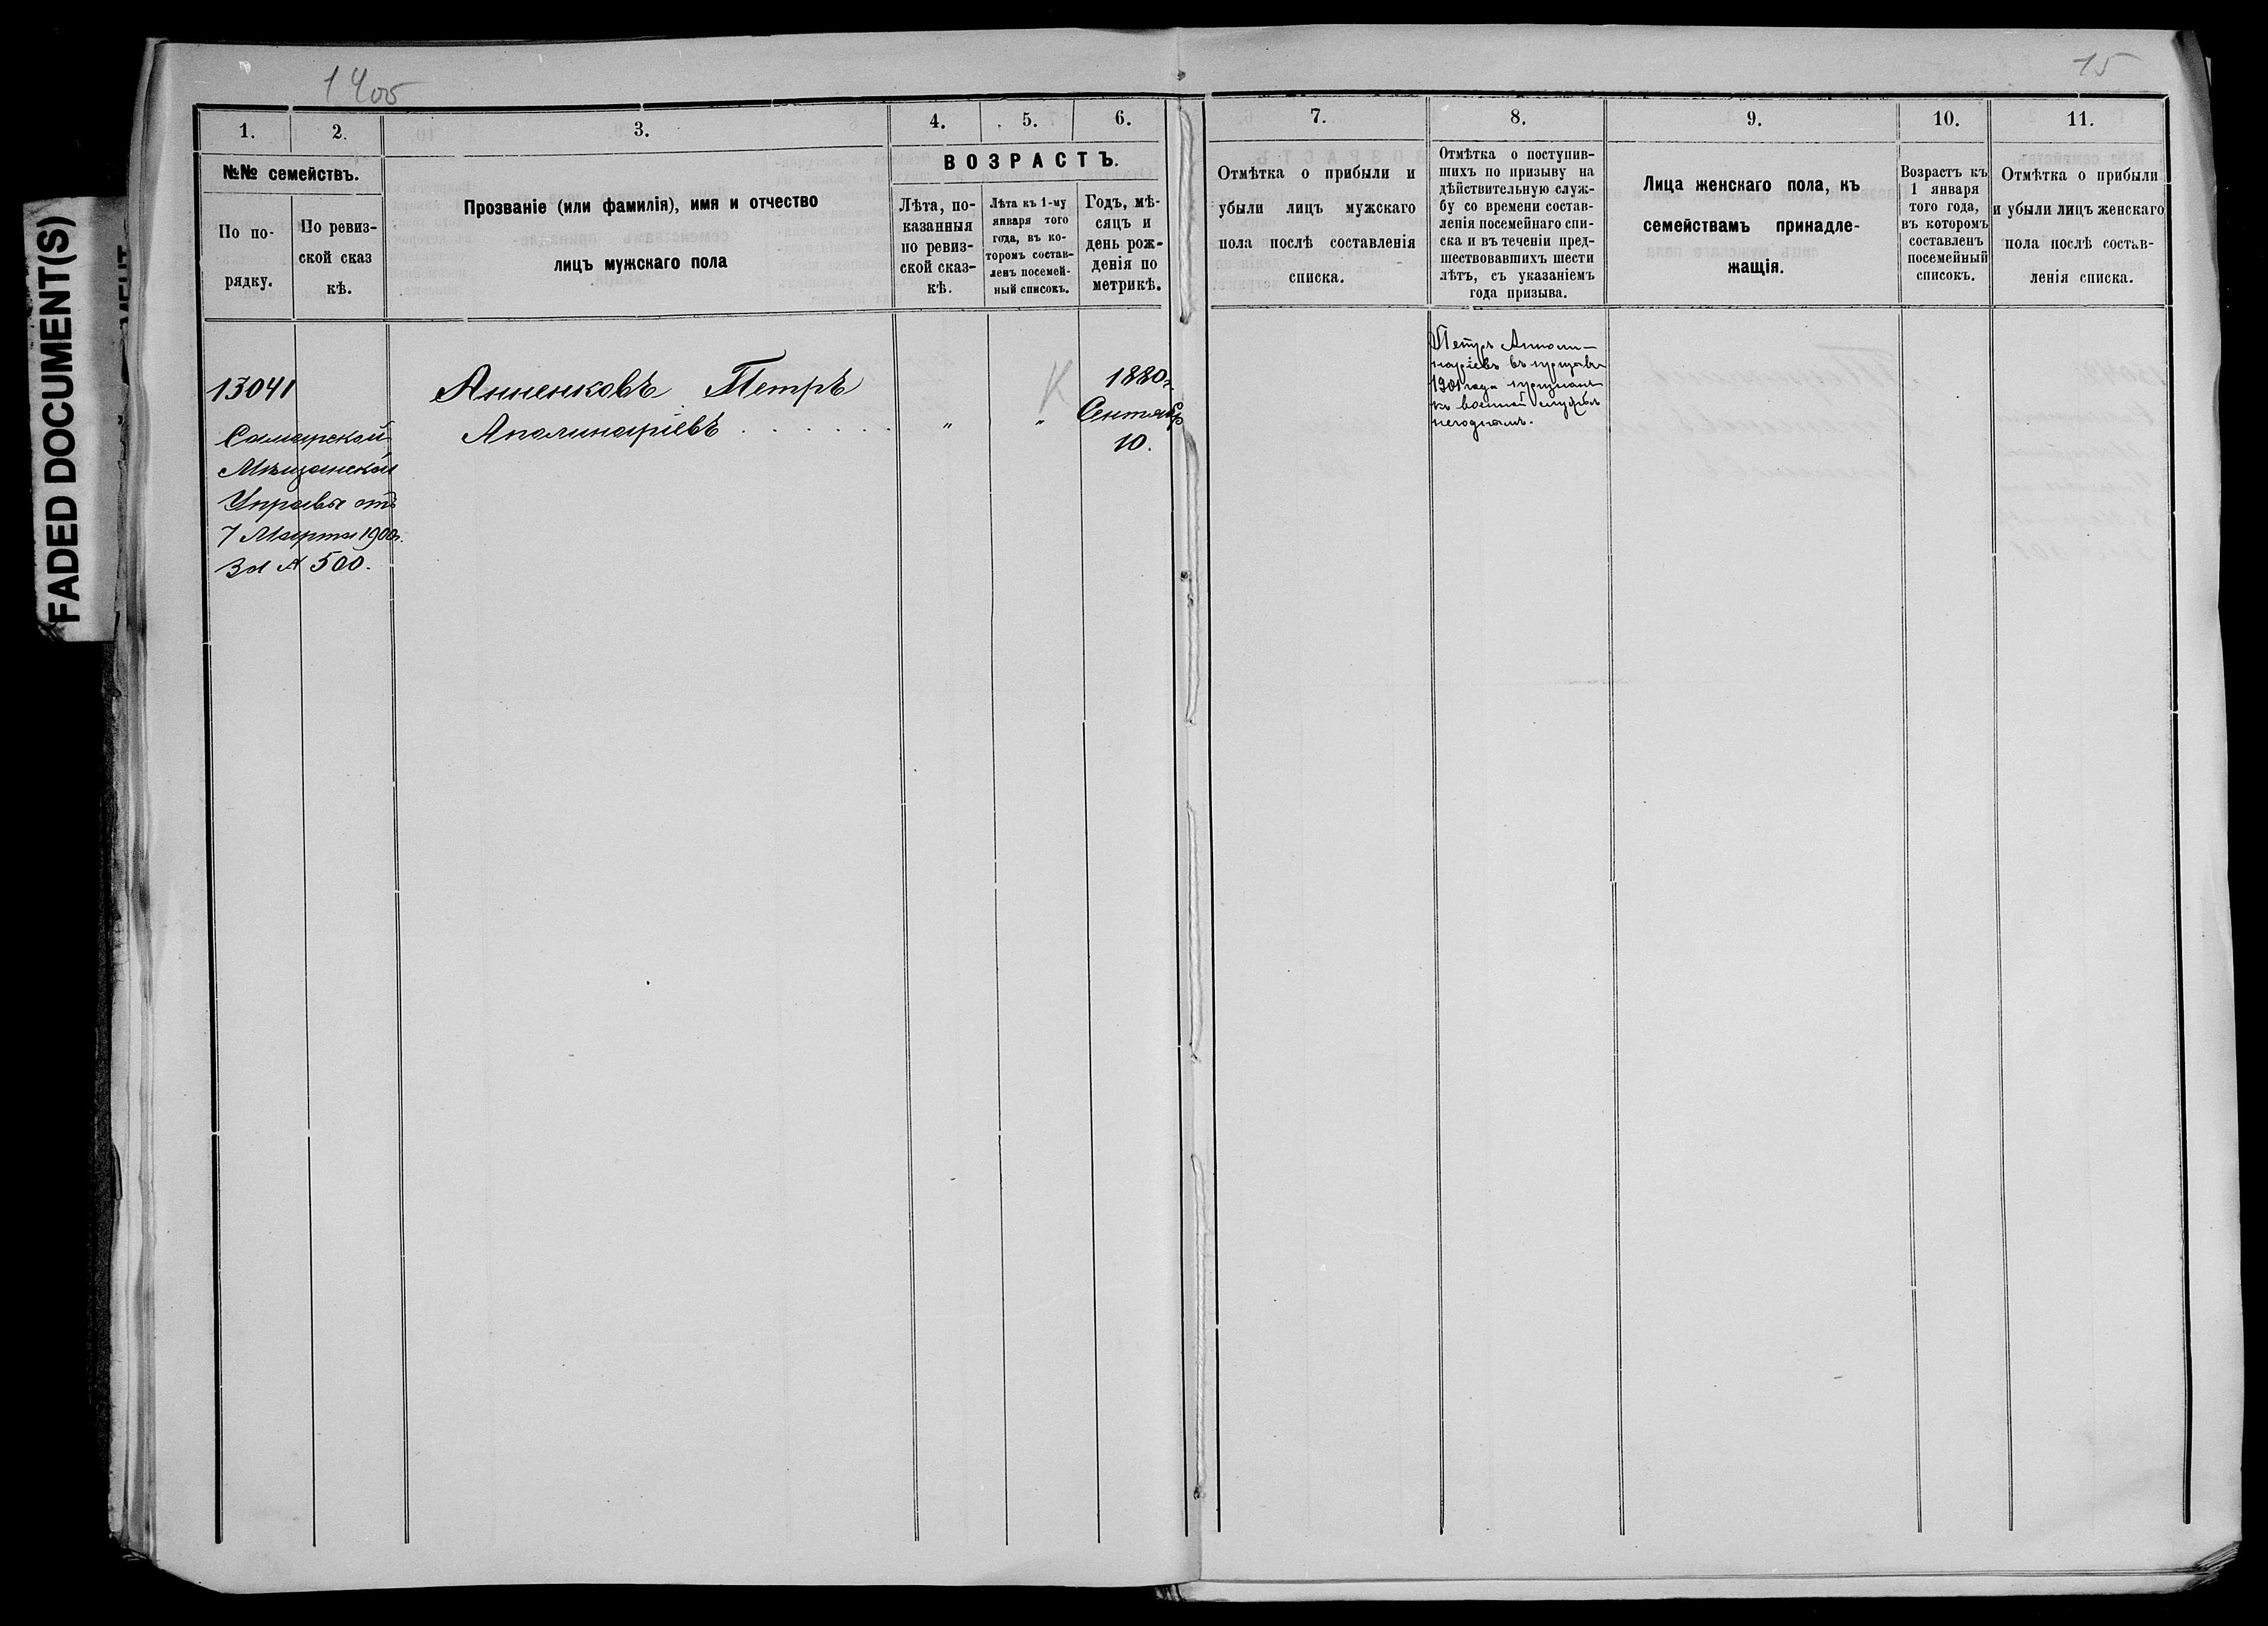 FADED DOCUMENT(S)
15
1.
2.
3.
4.
5.
6.
7.
8.
9.
10.
11.
№№ семействъ.
По по-
рядку.
По ревиз-
ской сказ
кѣ.
Прозваніе (или фамилія), имя и отчество
лицъ мужскаго пола
ВОЗРАСТЪ.
Лѣта, по-
казанныя
по ревиз-
ской сказ-
кѣ.
Лѣта къ 1-му
января того
года, въ ко-
торомъ состав-
ленъ посемей-
ный списокъ.
Годъ, мѣ-
сяцъ и
день рож-
денія по
метрикѣ.
Отмѣтка о прибыли и
убыли лицъ мужскаго
пола послѣ составленія
списка.
Отмѣтка о поступив-
шихъ по призыву на
дѣйствительную служ-
бу со времени состав-
ленія посемейнаго спи-
ска и въ теченіи пред-
шествовавшихъ шести
лѣтъ, съ указаніемъ
года призыва.
Лица женскаго пола, къ
семействамъ принадле-
жащія.
Возрастъ къ
1 января
того года,
въ которомъ
составленъ
посемейный
списокъ.
Отмѣтка о прибыли
и убыли лицъ женскаго
пола послѣ состав-
ленія списка.
13041
Самарской
Мѣщанской
Управы отъ
7 Марта 1900г.
За № 500.
Анненковъ Петръ
Аполинаріевъ . . . . . . .
"
"
К
1880г.
Сентябр
10.
Петръ Апполи-
наріевъ въ призывъ
1901 года признанъ
къ военной службѣ
негоднымъ.